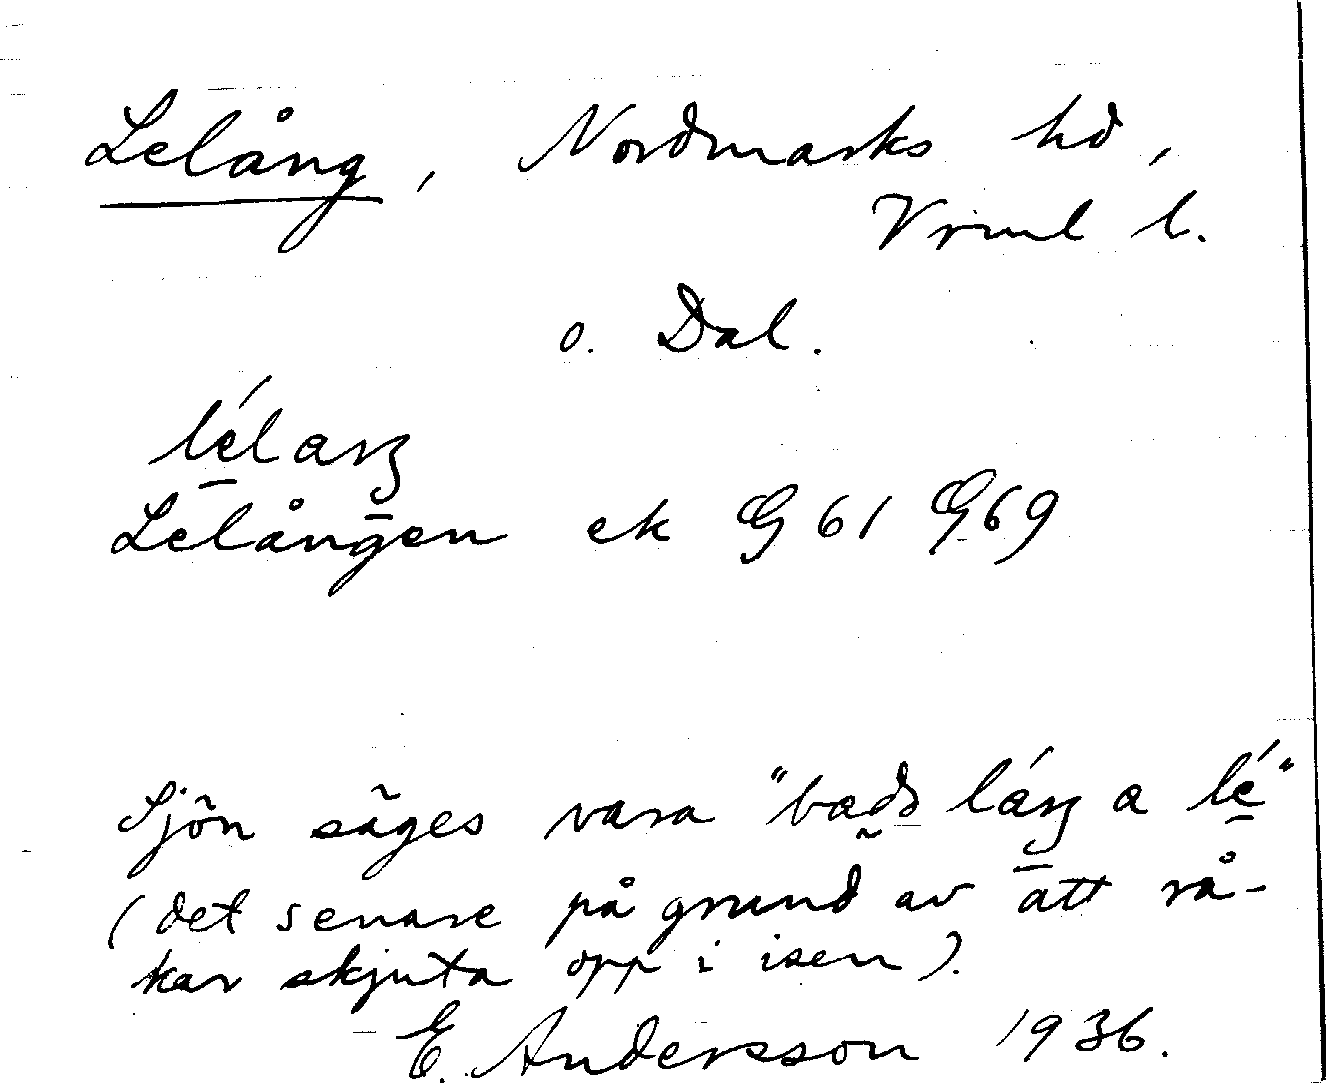 Lelång, Nordmarks hd,
Vrml l.
o. Dal.
lélaŋ
Lelången ek G 61 G 69
Sjön säges vara "bæds láŋ a lé"
(det senare på grund av att rå-
kar skjuta opp i isen).
E. Andersson 1936.